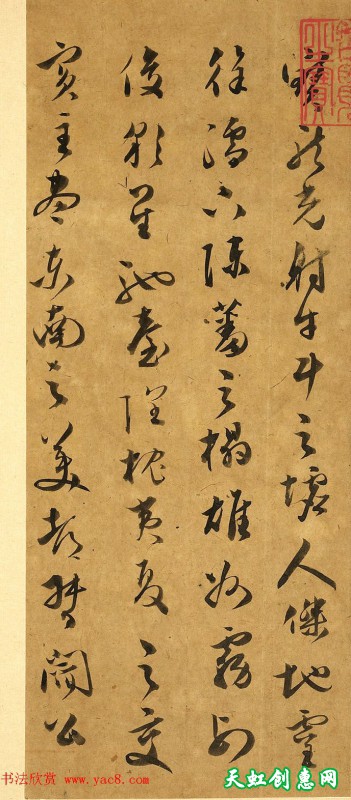 寶龍光射牛斗之墟人傑地靈
徐孺下陳蕃之榻雄州霧列
俊彩星馳臺隍枕夷夏之交
賓主盡東南之美都督閻公
书法欣赏 www.yac8.com
天虹创意网